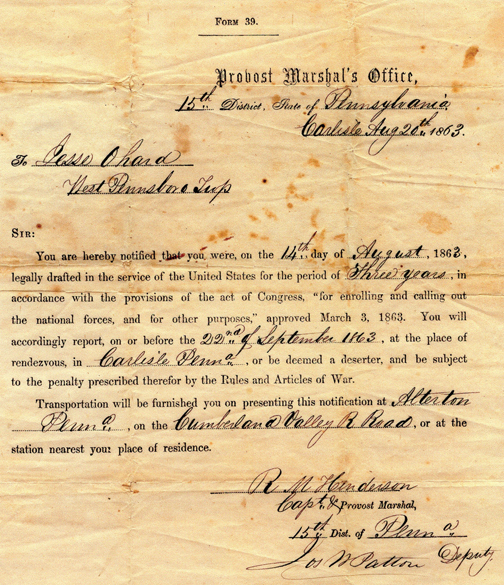 FORM 39.
Provost Marshal's Office,
15th District, State of Pennsylvania
Carlisle Aug 20th, 1863.
To Jesse Ohard
West Pennsboro Twp
SIR:
You are hereby notified that you were, on the 14th day of August, 1863,
legally drafted in the service of the United States for the period of Three years, in
accordance with the provisions of the act of Congress, "for enrolling and calling out
the national forces, and for other purposes," approved March 3, 1863. You will
accordingly report, on or before the 22nd of September 1863, at the place of
rendezvous, in Carlisle Penna, or be deemed a deserter, and be subject
to the penalty prescribed therefor by the Rules and Articles of War.
Transportation will be furnished you on presenting this notification at Alterton
Penna, on the Cumberland Valley R Road, or at the
station nearest your place of residence.
R M Henderson
Capt & Provost Marshal,
15th Dist. of Penna
Jos W Patton Deputy